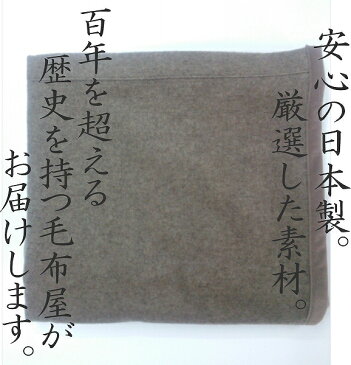 安心の日本製。
厳選した素材。
百年を超える
歴史を持つ毛布屋が
お届けします。